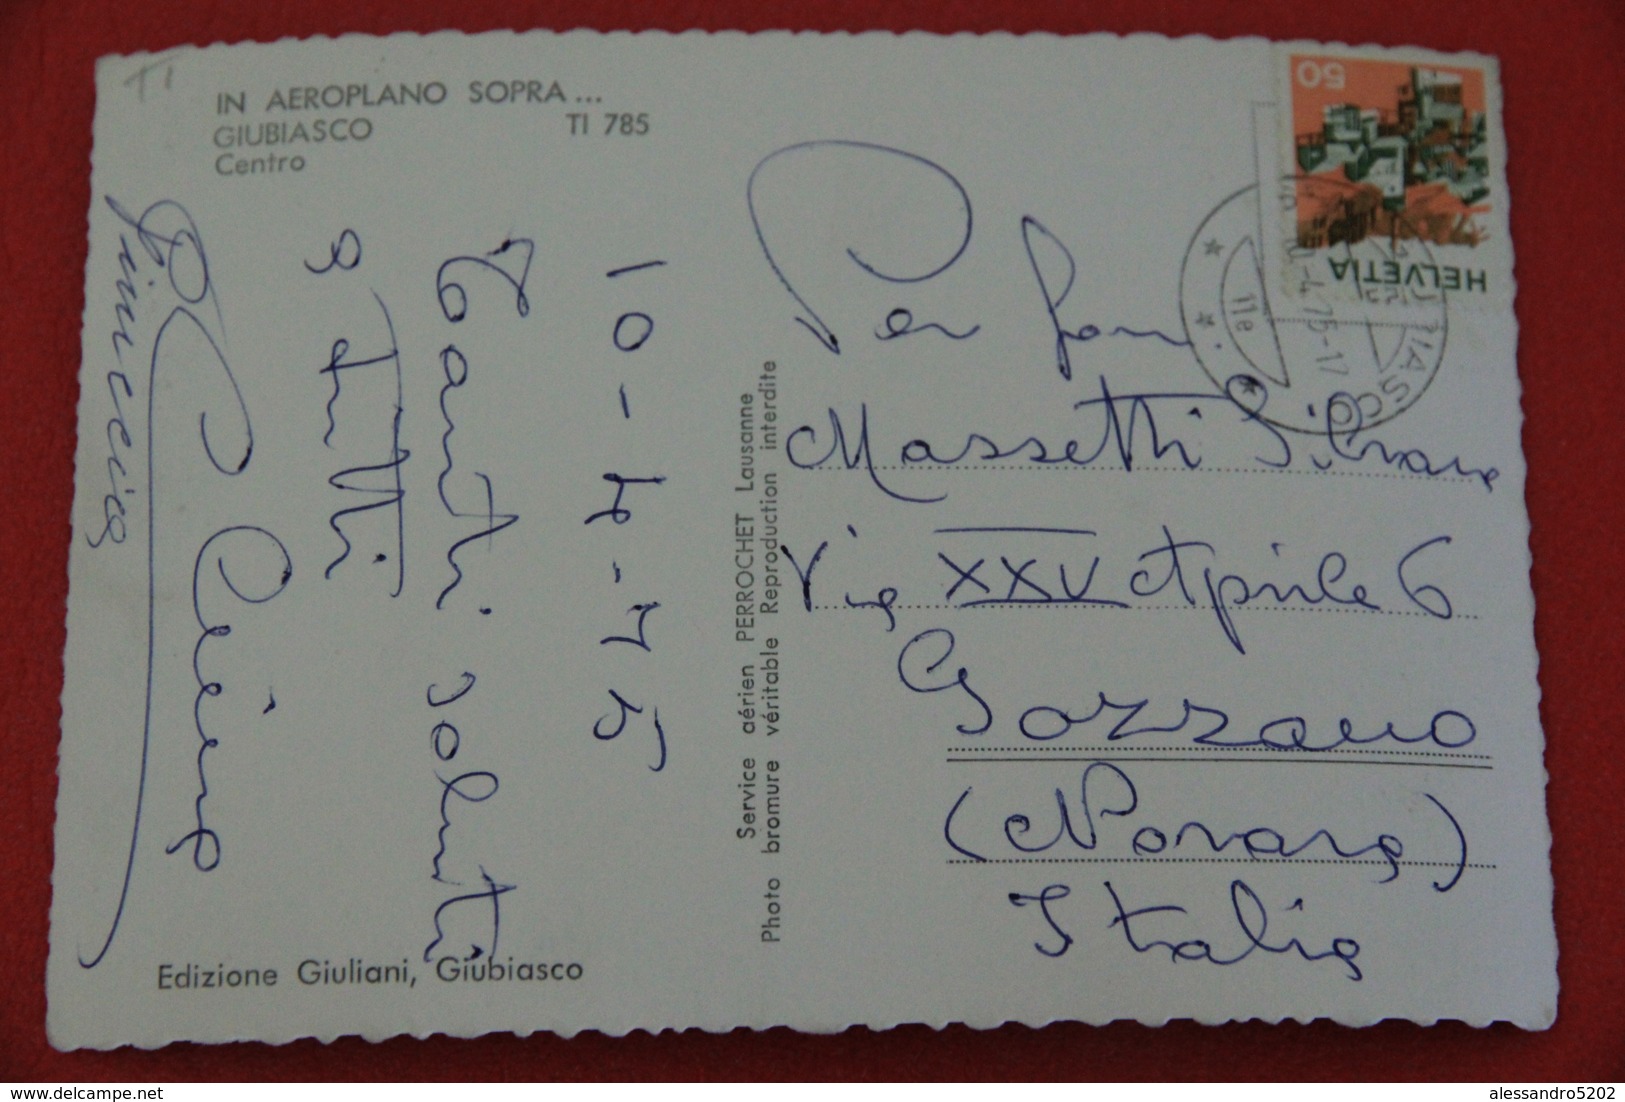 TI
IN AEROPLANO SOPRA...
GIUBIASCO TI 785
Centro
10-4-75
Tanti saluti
a tutti
Service aérien PERROCHET Lausanne
Photo bromure véritable Reproduction interdite
Edizione Giuliani, Giubiasco
50
HELVETIA
GIUBIASCO
11e
Per fam.
Massetti Silvana
Via XXV Aprile 6
Gozzano
(Novara)
Italia
delcampe.net
alessandro5202